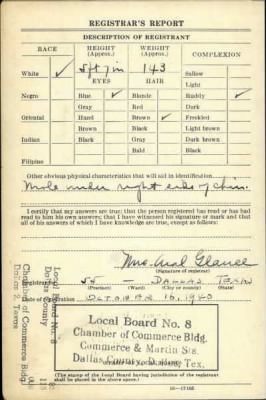 REGISTRAR'S REPORT
DESCRIPTION OF REGISTRANT
RACE HEIGHT (Approx.) WEIGHT (Approx.) COMPLEXION
White ✓ 5 ft 7 in 143 Sallow
EYES HAIR Light
Negro Blue ✓ Blonde Ruddy ✓
Gray Red Dark
Oriental Hazel Brown ✓ Freckled
Brown Black Light brown
Indian Black Gray Dark brown
Bald Black
Filipino
Other obvious physical characteristics that will aid in identification
Mole under right side of chin.
I certify that my answers are true; that the person registered has read or has had
read to him his own answers; that I have witnessed his signature or mark and that
all of his answers of which I have knowledge are true, except as follows:
Mrs.
(Signature of registrar)
Registrar for 54 — Dallas Texas
(Precinct) (Ward) (City or county) (State)
Date of registration October 16, 1940
Local Board No. 8
Dallas County
Chamber of Commerce Bldg.
Dallas 2, Texas
Local Board No. 8
Chamber of Commerce Bldg.
Commerce & Martin Sts.
Dallas County, Dallas, Texas
(The stamp of the Local Board having jurisdiction of the registrant
shall be placed in the above space.)